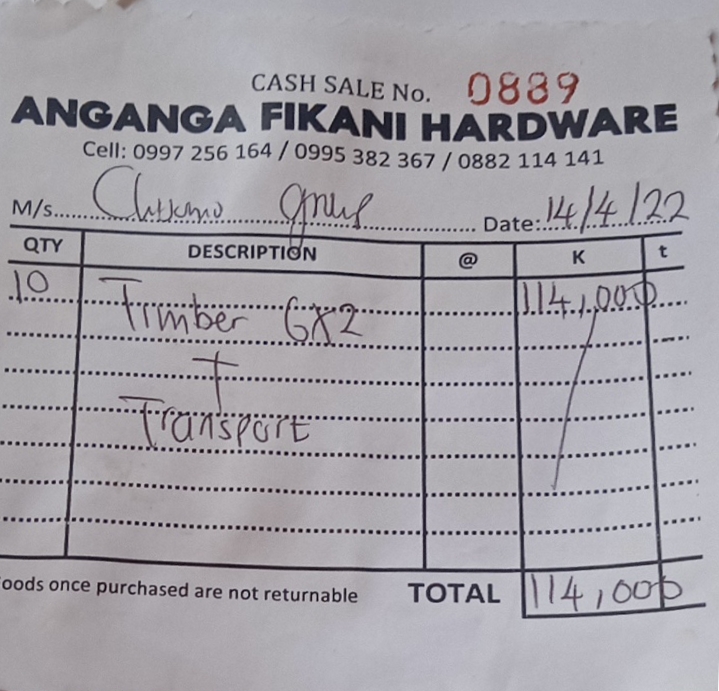 CASH SALE No. 0889
ANGANGA FIKANI HARDWARE
Cell: 0997 256 164 / 0995 382 367 / 0882 114 141
M/s.......... Date: 14/4/22
QTY DESCRIPTION @ K t
10 Timber 6x2 114,000
+
Transport
oods once purchased are not returnable TOTAL 114,000